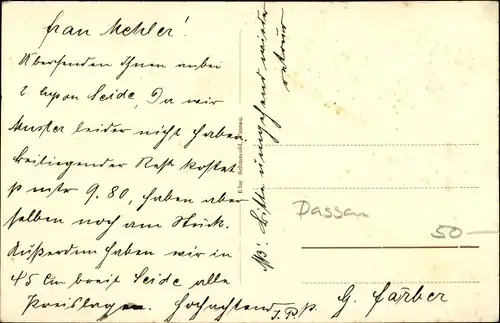 Frau Mehler!
Übersenden Ihnen anbei
2 Seide, Da wir
Muster leider nicht haben.
beiliegender Rest kostet
p mtr 9.80, haben aber
selben noch am Stück.
Außerdem haben wir in
45 cm breit Seide alle
Preislagen. Hochachtend
J. P. p. G. Färber
NB: Bitte umgehend wieder
retour
Passau
50-